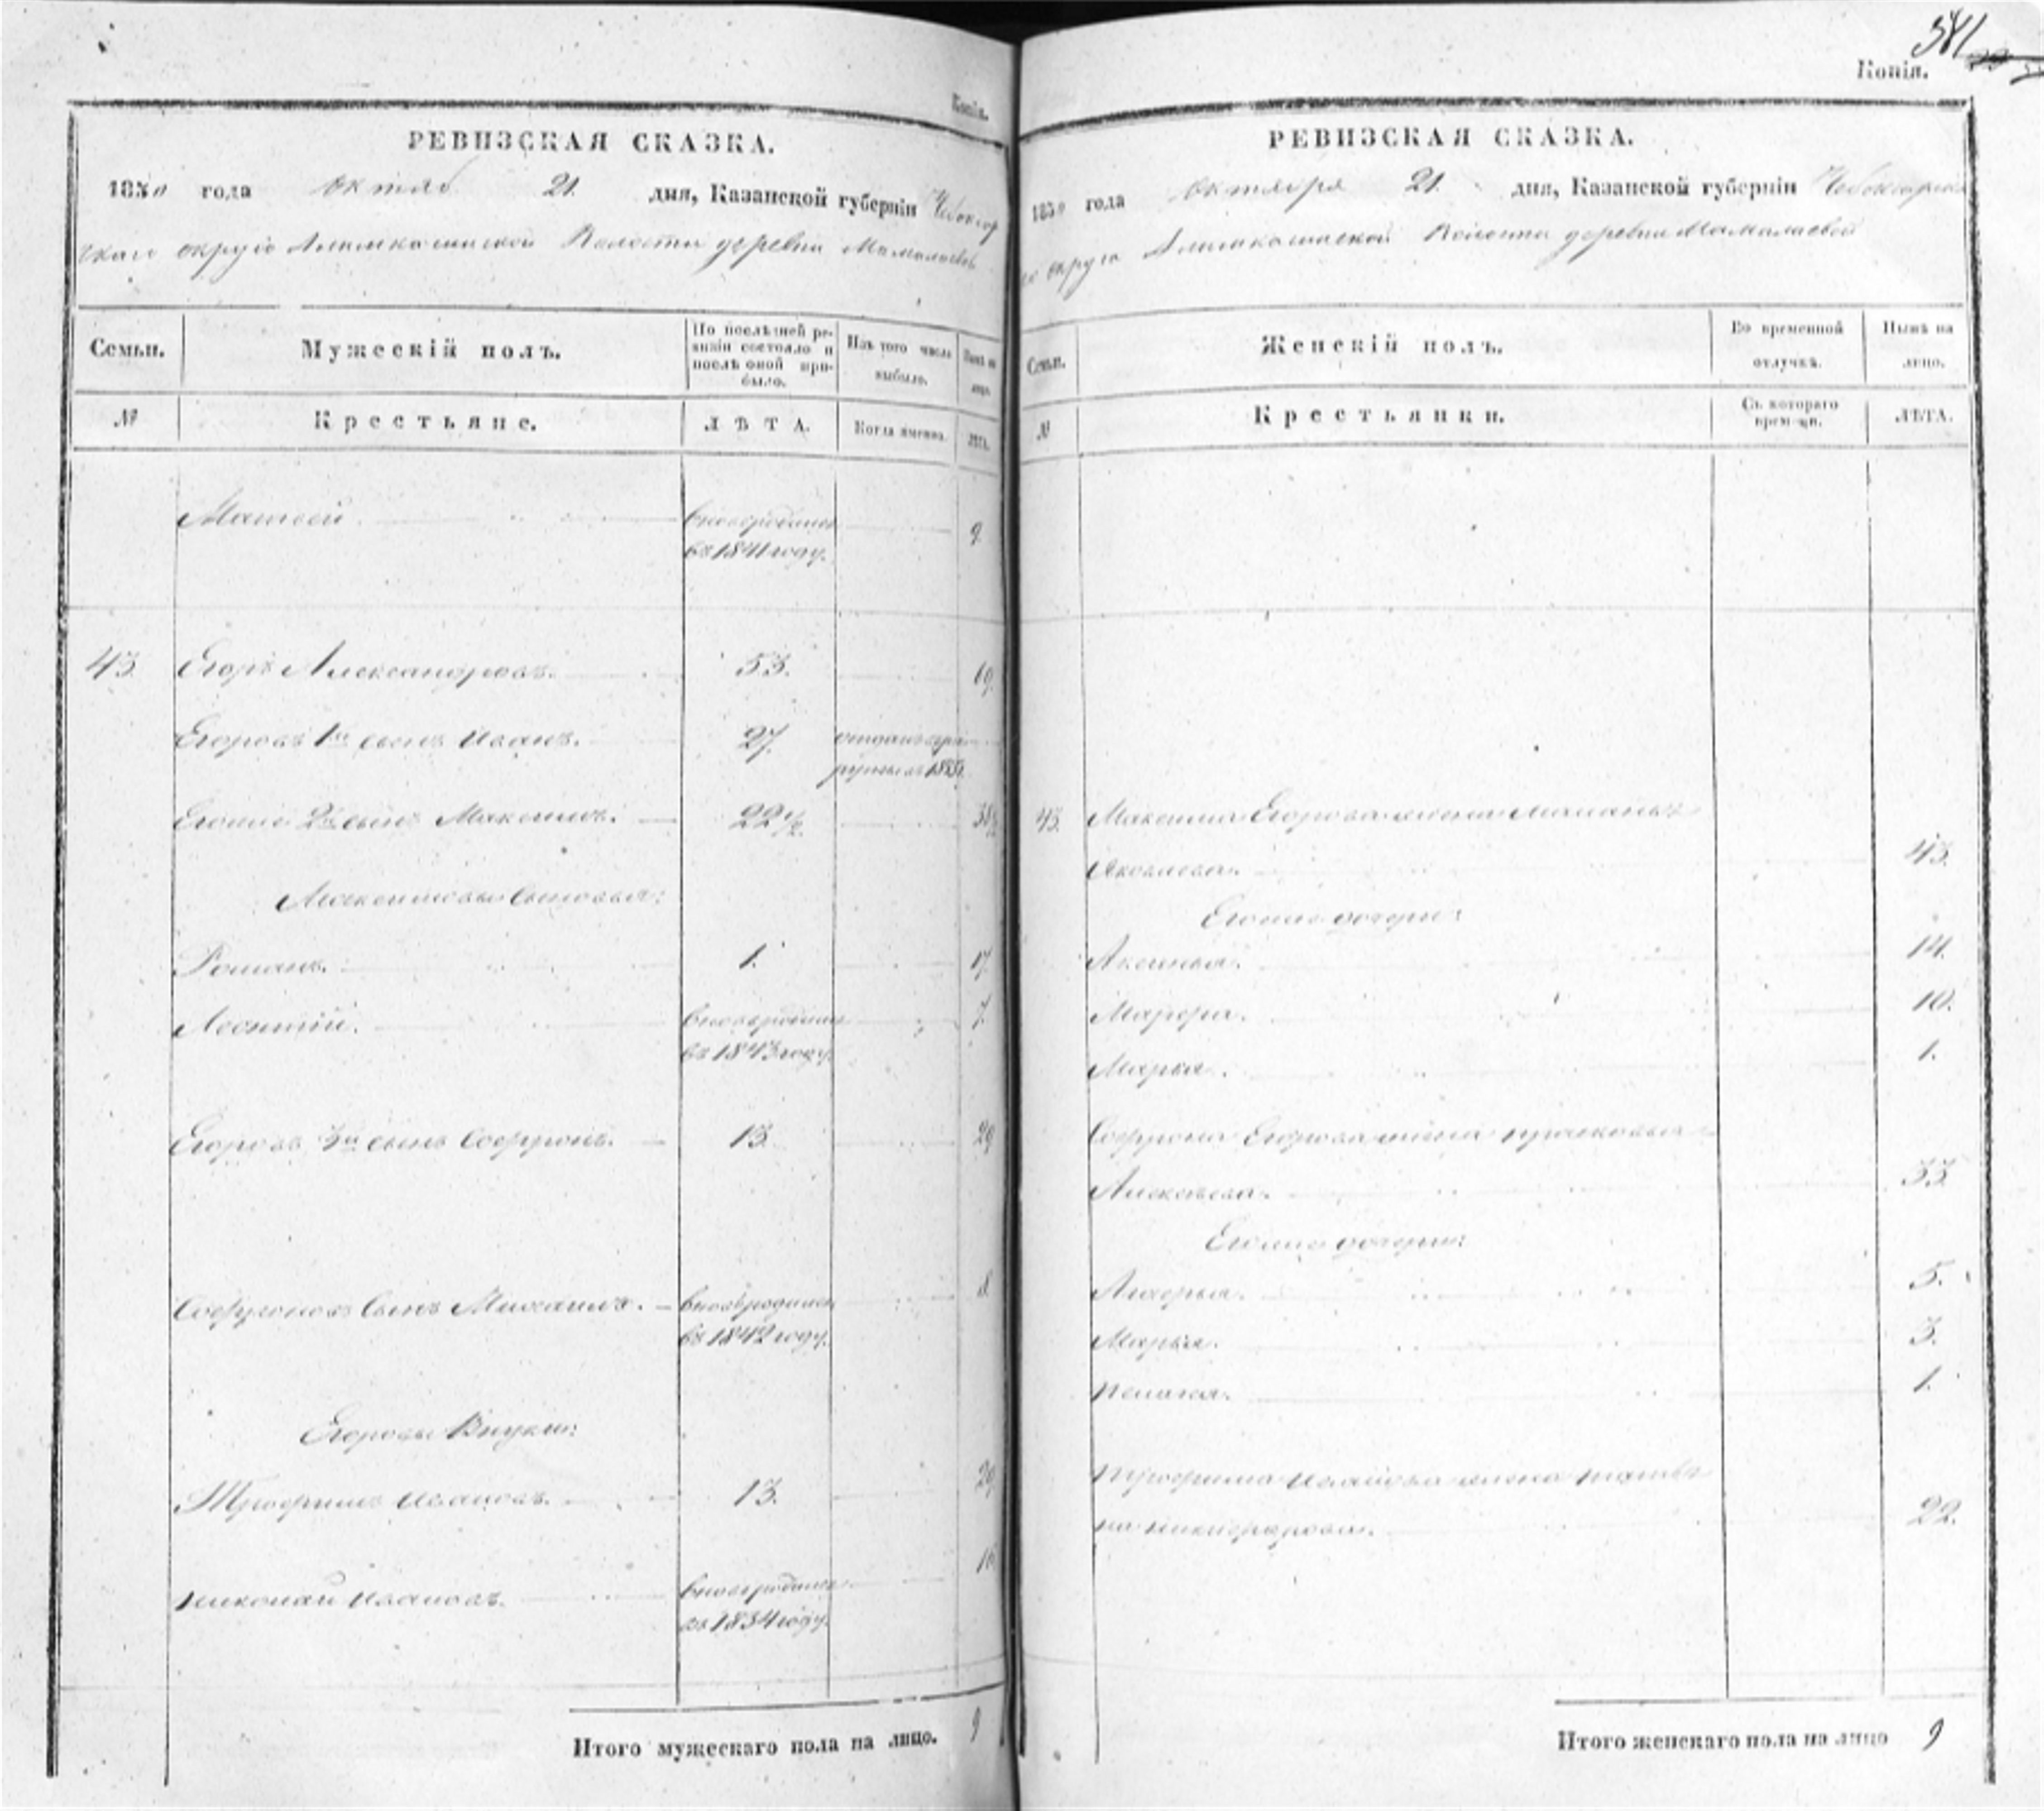 581
Копія.
Копія.
РЕВИЗСКАЯ СКАЗКА.
1850 года октяб 21. дня, Казанской губерніи Чебоксар
скаго округа Волости деревни
Семьи.
Мужескій полъ.
По послѣдней ре-
визіи состояло и
послѣ оной при-
было.
Изъ того числа
выбыло.
Нынѣ на
лицо.
№
Крестьяне.
ЛѢТА.
Когда именно.
лѣтъ.
Матвей. вновьрожденъ 9.
въ 1841 году.
43. Егоръ Александровъ. 53. 69.
Егоровъ 1й сынъ Иванъ. 27. отданъ
въ 1835.
Егоже 2й сынъ Максимъ. 22½ 38½
Максимовы сыновья:
Романъ. 1. 17.
Леонтій. вновьрожденъ 7.
въ 1843 году.
Егоровъ 3й сынъ Софронъ. 13. 29
Софроновъ сынъ Михаилъ. вновьрожденъ 8
въ 1842 году.
Егоровы внуки:
Трофимъ Ивановъ. 13. 29.
Николай Ивановъ. вновьрожденъ 16
въ 1834 году.
Итого мужескаго пола на лицо. 9
РЕВИЗСКАЯ СКАЗКА.
1850 года октября 21. дня, Казанской губерніи Чебоксарска
го округа Волости деревни
Семьи.
Женскій полъ.
Во временной
отлучкѣ.
Нынѣ на
лицо.
№
Крестьянки.
Съ котораго
времени.
ЛѢТА.
43. Максима Егорова жена Маланья
Яковлева. 43.
Егоже дочери:
Аксинья. 14.
Марфа. 10.
Марья. 1.
Софрона Егорова жена Прасковья
Алексѣева. 33.
Егоже дочери:
5.
Марья. 3.
Пелагея. 1.
Трофима Иванова жена Татья
на Никифорова. 22.
Итого женскаго пола на лицо 9